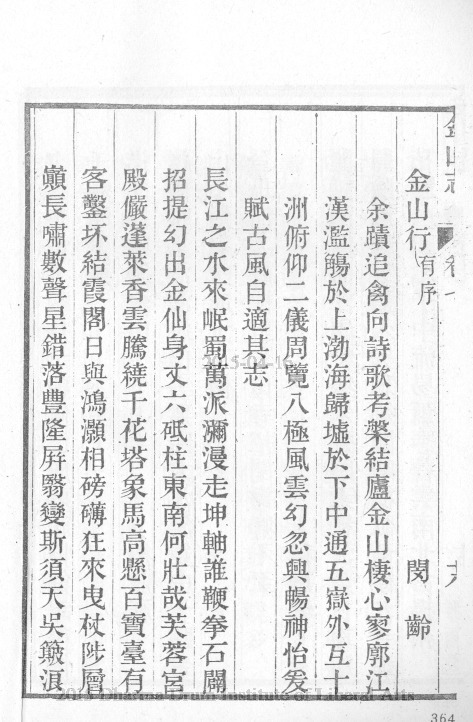 金山志 卷七 十八
金山行有序 閔齡
余蹟追禽向詩歌考槃結廬金山棲心寥廓江
漢濫觴於上渤海歸墟於下中通五嶽外互十
洲俯仰二儀周覽八極風雲幻忽興暢神怡爰
賦古風自適其志
長江之水來岷蜀萬派瀰漫走坤軸誰鞭拳石闢
招提幻出金仙身丈六砥柱東南何壯哉芙蓉宮
殿儼蓬萊香雲騰繞千花塔象馬高懸百寶臺有
客鑿坏結霞閣日與鴻灝相磅礴狂來曳杖陟層
巔長嘯數聲星錯落豐隆屏翳變斯須天吳簸浪
364
2015 Dharma Drum Institute of Liberal Arts